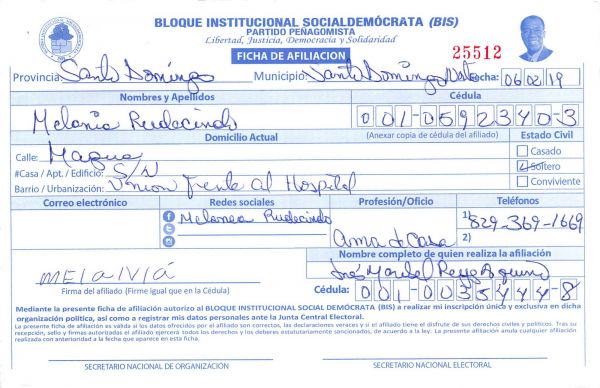 BLOQUE INSTITUCIONAL SOCIALDEMÓCRATA (BIS)
PARTIDO PEÑAGOMISTA
Libertad, Justicia, Democracia y Solidaridad
FICHA DE AFILIACION
25512
Provincia: Santo Domingo Municipio: Santo Domingo Norte Fecha: 06/02/19
Nombres y Apellidos Cédula
Melania Rudecindo 001-0592340-3
Domicilio Actual (Anexar copia de cédula del afiliado) Estado Civil
Calle: Hague Casado
#Casa / Apt. / Edificio: S/N Soltero
Barrio / Urbanización: Union frente al Hospital Conviviente
Correo electrónico Redes sociales Profesión/Oficio Teléfonos
Melanea Rudecindo 1) 829-369-1669
Ama de Casa 2)
Nombre completo de quien realiza la afiliación
MEIAIVIÁ Inés Maribel Reyes Aquino
Firma del afiliado (Firme igual que en la Cédula) Cédula: 001-0035444-8
Mediante la presente ficha de afiliación autorizo al BLOQUE INSTITUCIONAL SOCIAL DEMÓCRATA (BIS) a realizar mi inscripción única y exclusiva en dicha
organización politica, así como a registrar mis datos personales ante la Junta Central Electoral.
La presente ficha de afiliación es válida si los datos ofrecidos por el afiliado son correctos, las declaraciones veraces y si el afiliado tiene el disfrute de sus derechos civiles y políticos. Tras su
recepción, sello y firmas autorizadas el afiliado ejercerá todos los derechos y los deberes estatutariamente sancionados, de acuerdo a la ley. La presente afiliación anula cualquier afiliación
realizada con anterioridad a la fecha que aparece en esta ficha.
SECRETARIO NACIONAL DE ORGANIZACIÓN SECRETARIO NACIONAL ELECTORAL